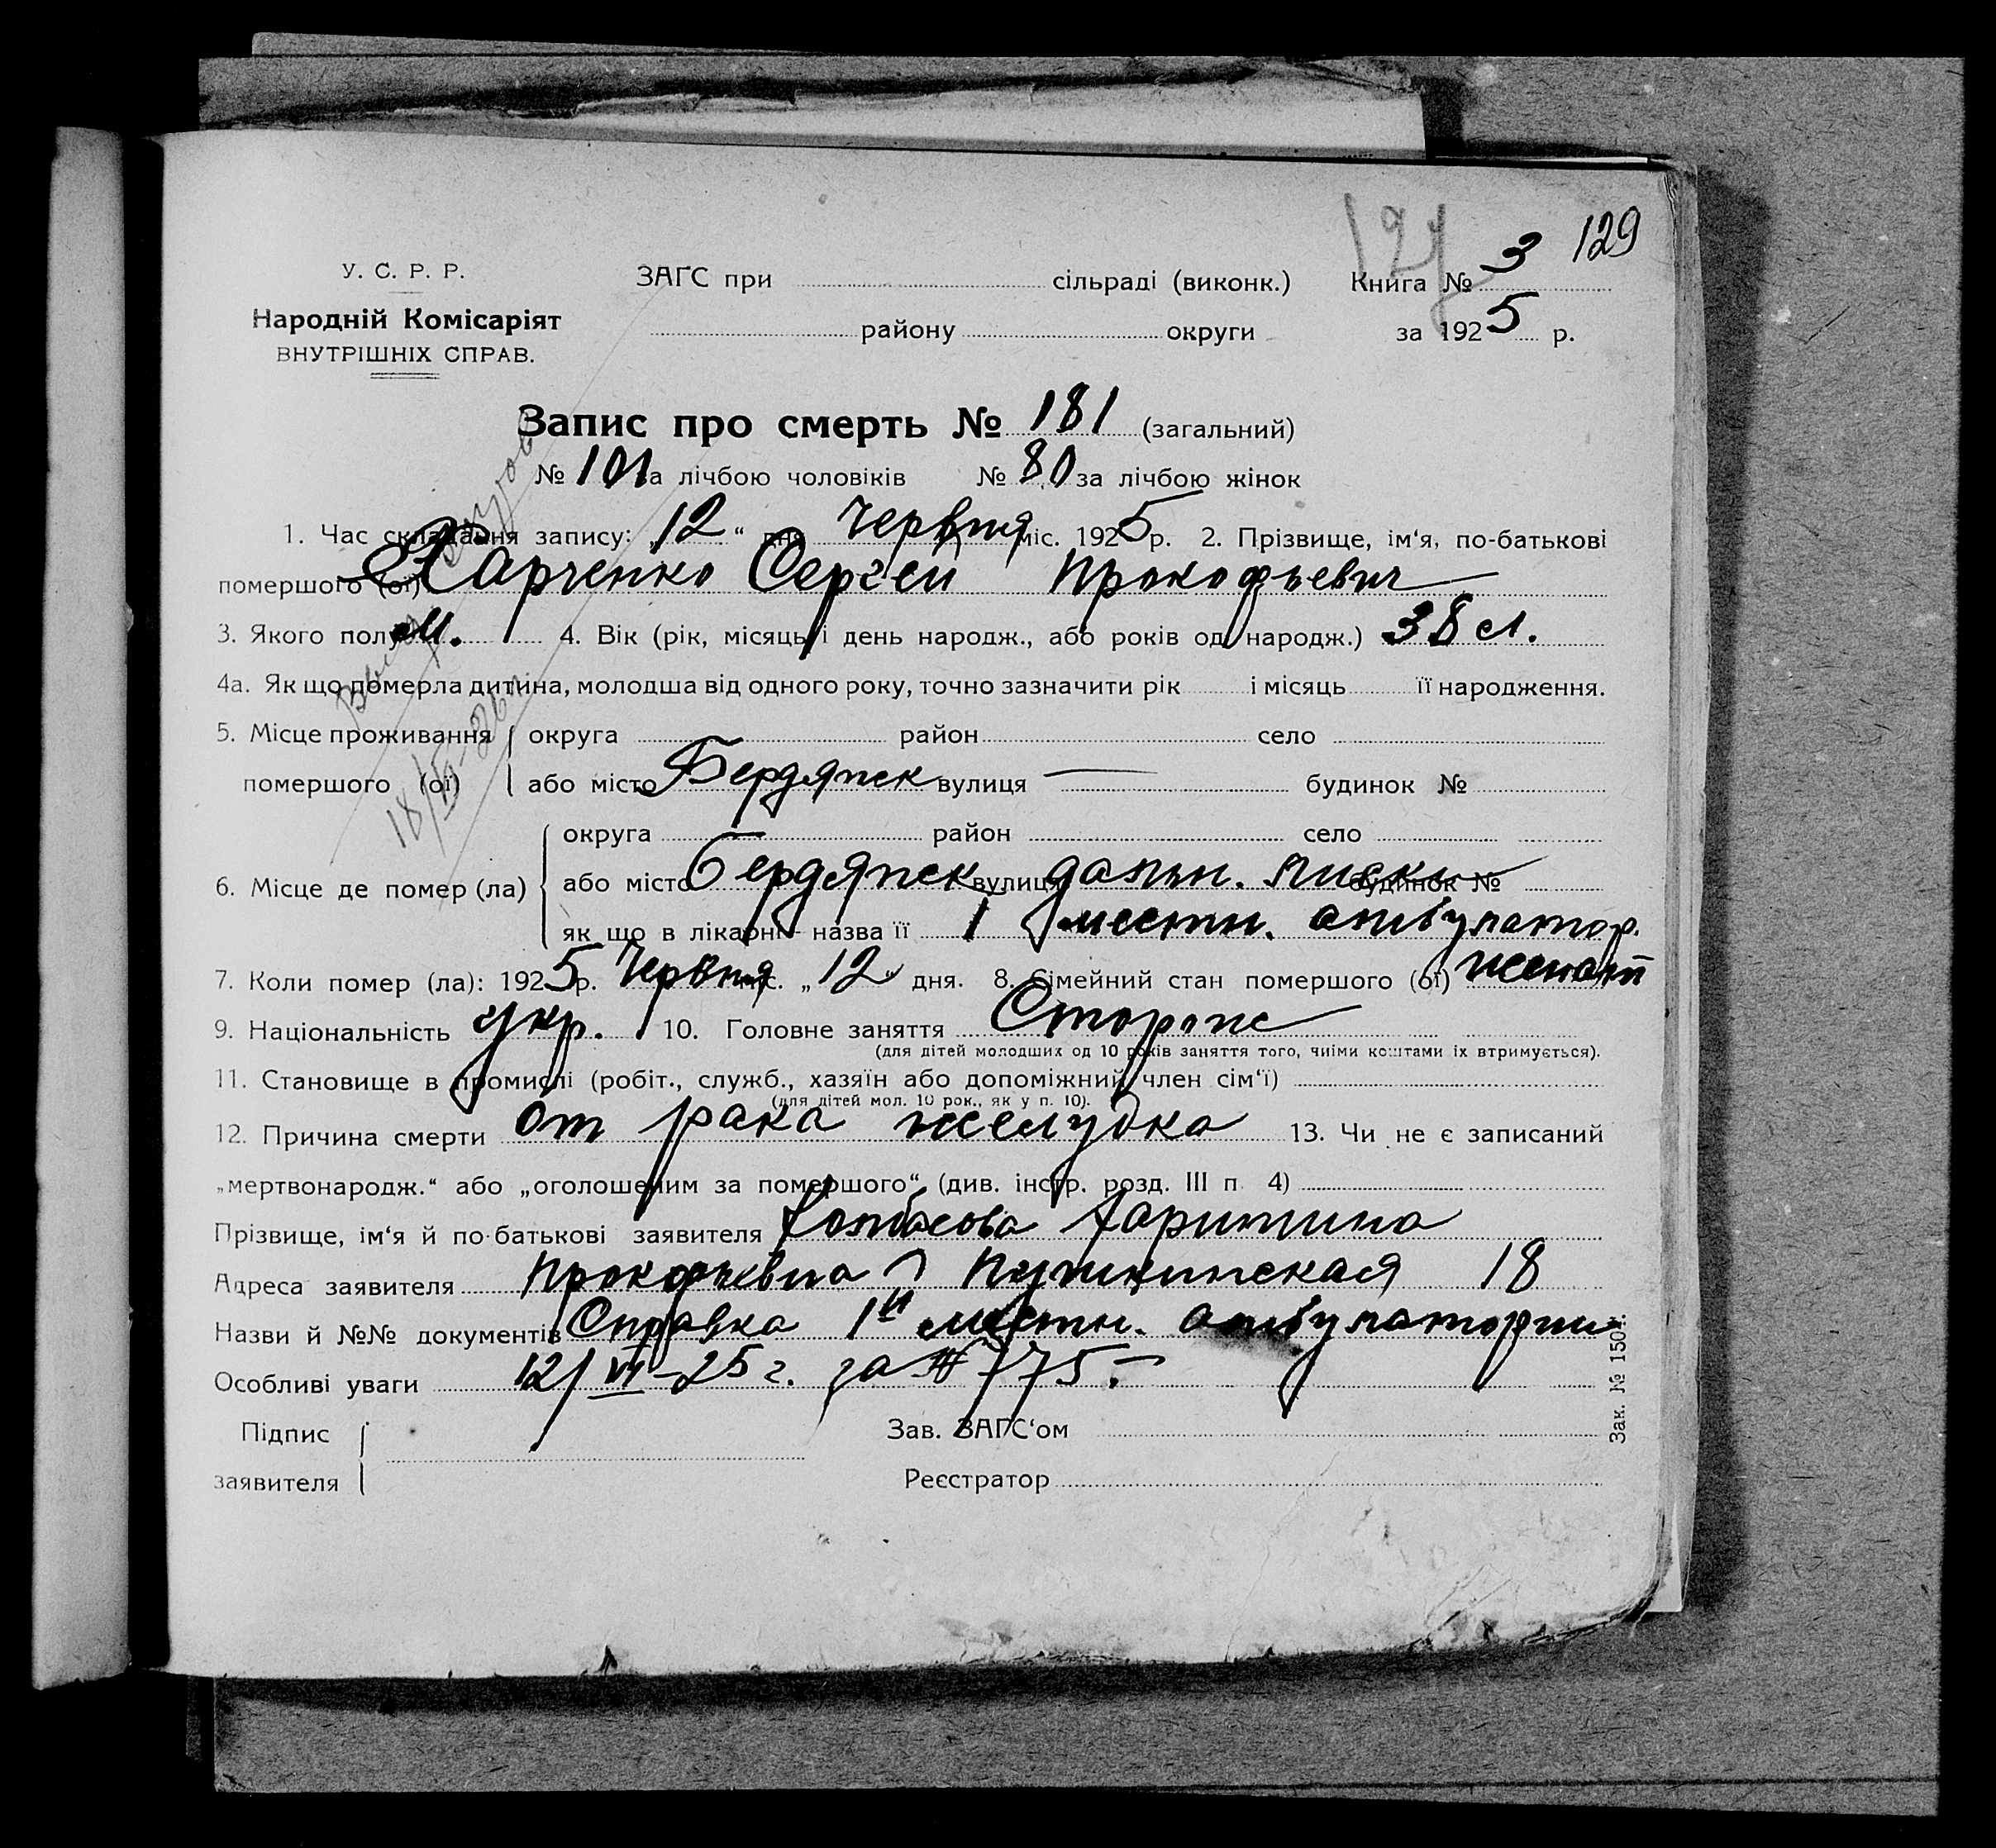 129
У. С. Р. Р. ЗАГС при сільраді (виконк.) Книга № 3
Народній Комісаріят району округи за 1925 р.
ВНУТРІШНІХ СПРАВ.
Запис про смерть № 181 (загальний)
№ 101 за лічбою чоловіків № 80 за лічбою жінок
1. Час складання запису: „12“ дня червня міс. 1925 р. 2. Прізвище, ім‘я, по-батькові
помершого (ої) Харченко Сергей Прокофьевич
3. Якого полу м. 4. Вік (рік, місяць і день народж., або років од народж.) 38 л.
4а. Як що померла дитина, молодша від одного року, точно зазначити рік і місяць її народження.
5. Місце проживання округа район село
помершого (ої) або місто Бердянск вулиця — будинок №
округа район село
6. Місце де помер (ла) або місто Бердянск вулиця дальн. будинок №
як що в лікарні - назва її 1 местн. амбулатор.
7. Коли помер (ла): 1925 р. Червня міс. „12“ дня. 8. Сімейний стан помершого (ої) женат
9. Національність укр. 10. Головне заняття Сторож
(для дітей молодших од 10 років заняття того, чиїми коштами їх втримується).
11. Становище в промислі (робіт., служб., хазяїн або допоміжний член сім‘ї)
(для дітей мол. 10 рок., як у п. 10).
12. Причина смерти от рака желудка 13. Чи не є записаний
„мертвонародж.“ або „оголошеним за помершого“ (див. інстр. розд. III п 4)
Прізвище, ім‘я й по-батькові заявителя Харитина
Адреса заявителя Прокофьевна Пушкинская 18
Назви й №№ документів Справка 1й местн. амбулатории
Особливі уваги 12/VI-25 г. за № 775.
Підпис Зав. ЗАГС‘ом
заявителя Реєстратор
Зак. № 1507.
18/IV-26